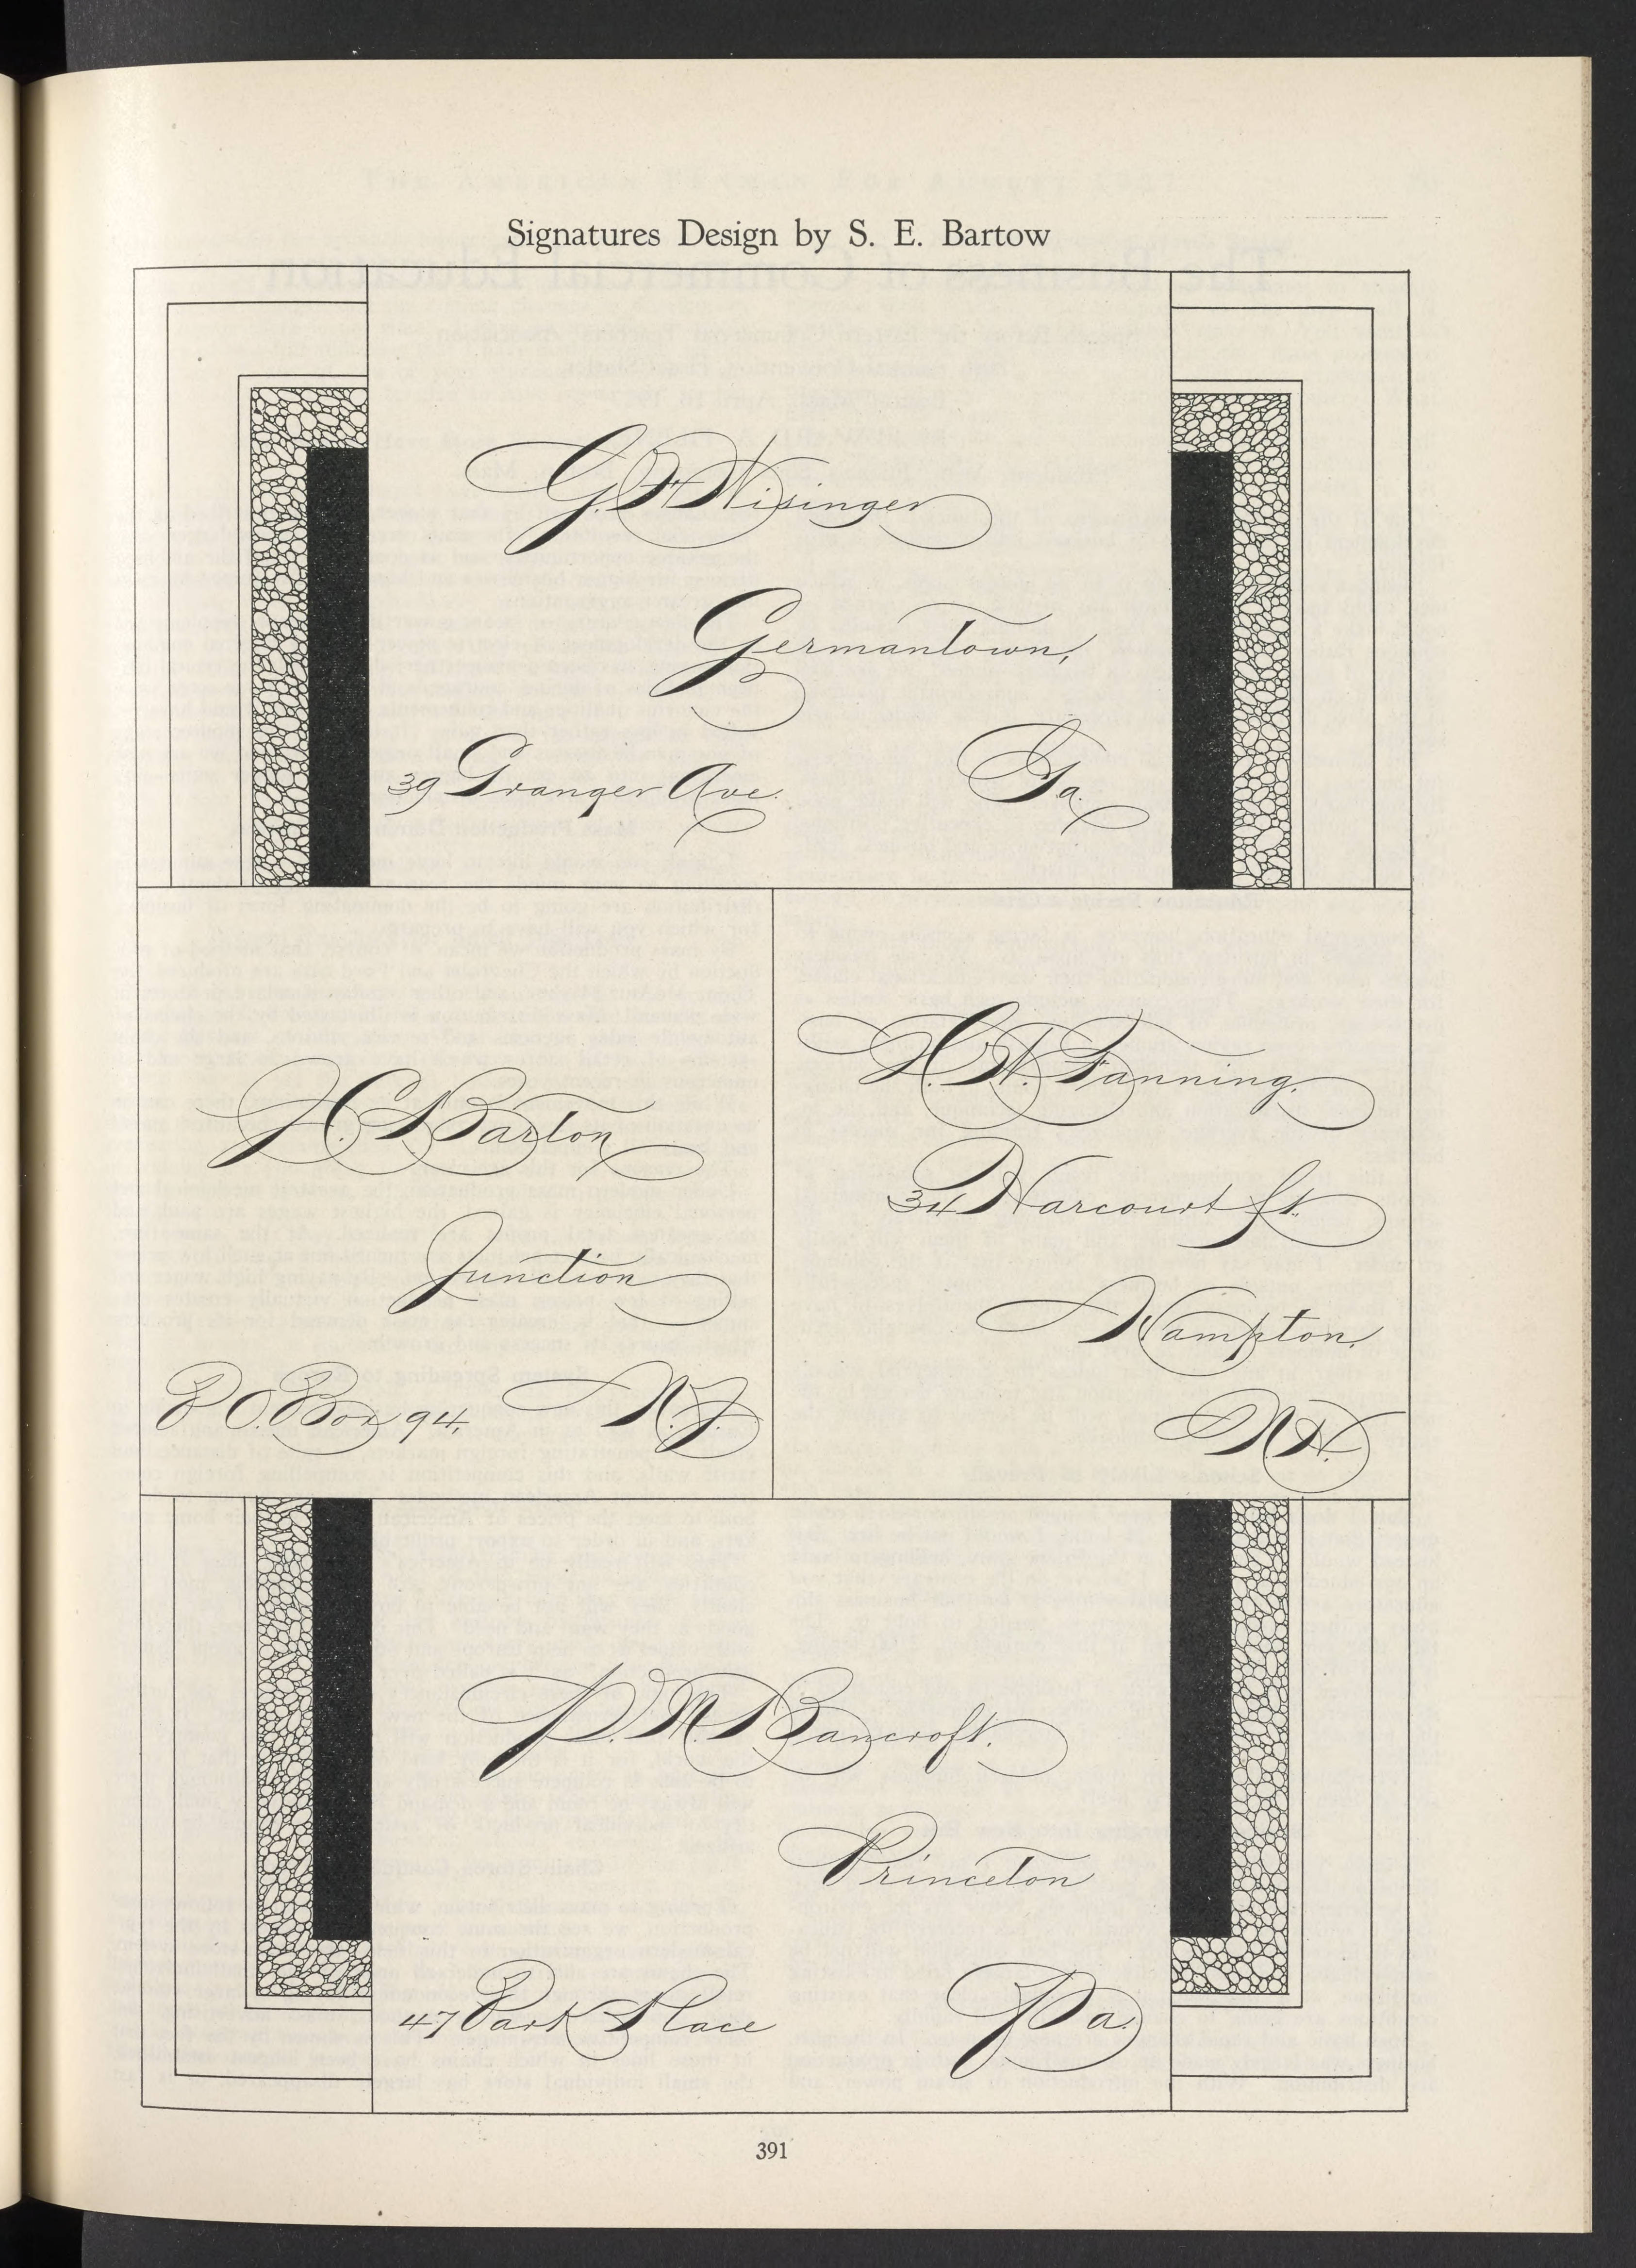 Signatures Design by S. E. Bartow
G. F. Wisinger
Germantown,
39 Granger Ave. Ga.
H. C. Barton
Junction
P O. Box 94, N. J.
H. N. Fanning.
34 Harcourt St.
Hampton,
N. H.
P. M. Bancroft.
Princeton
47 Park Place Pa.
391